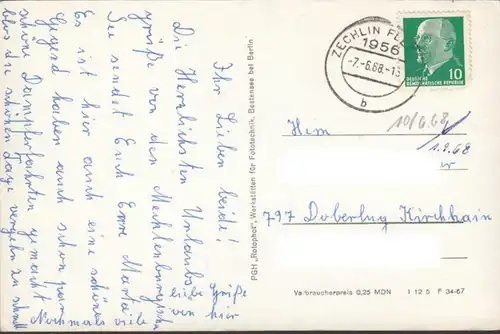 Ihr Lieben beide!
Die Herzlichsten Urlaubs-
grüße von den Mecklenburgische
See sendet Euch Erne Marta
Es ist hier auch eine schöne
Gegend haben auch schon paar
schöne Dampferfahrten gemacht
blos die schöfen Tage vergehn zu schnell
Nochmals viele
liebe Grüße
von hier
PGH „Rotophot“, Werkstätten für Fototechnik, Bestensee bei Berlin
ZECHLIN FL
1956
-7.-6.68.-1
b
10
DEUTSCHE
DEMOKRATISCHE REPUBLIK
Hem
10/6.68
1.9.68
w
797 Doberlug Kirchhain
Verbraucherpreis 0,25 MDN I 12 5 F 34-67